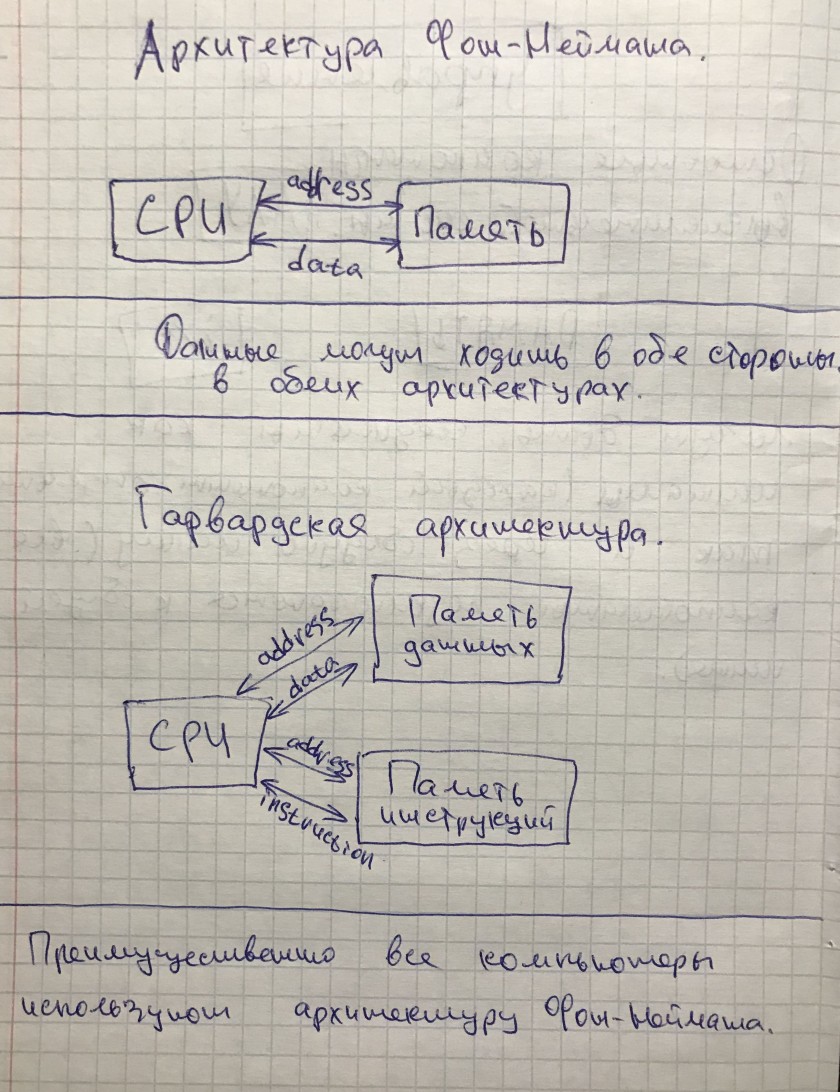 Архитектура Фон-Неймана.
address
CPU
Память
data
Данные могут ходить в обе стороны
в обеих архитектурах.
Гарвардская архитектура.
address
Память
данных
data
CPU
address
Память
инструкций
instruction
Преимущественно все компьютеры
используют архитектуру Фон-Неймана.